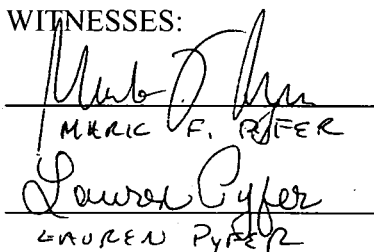 WITNESSES:
MARK F. PYFER
Lauren Pyfer
LAUREN PYFER